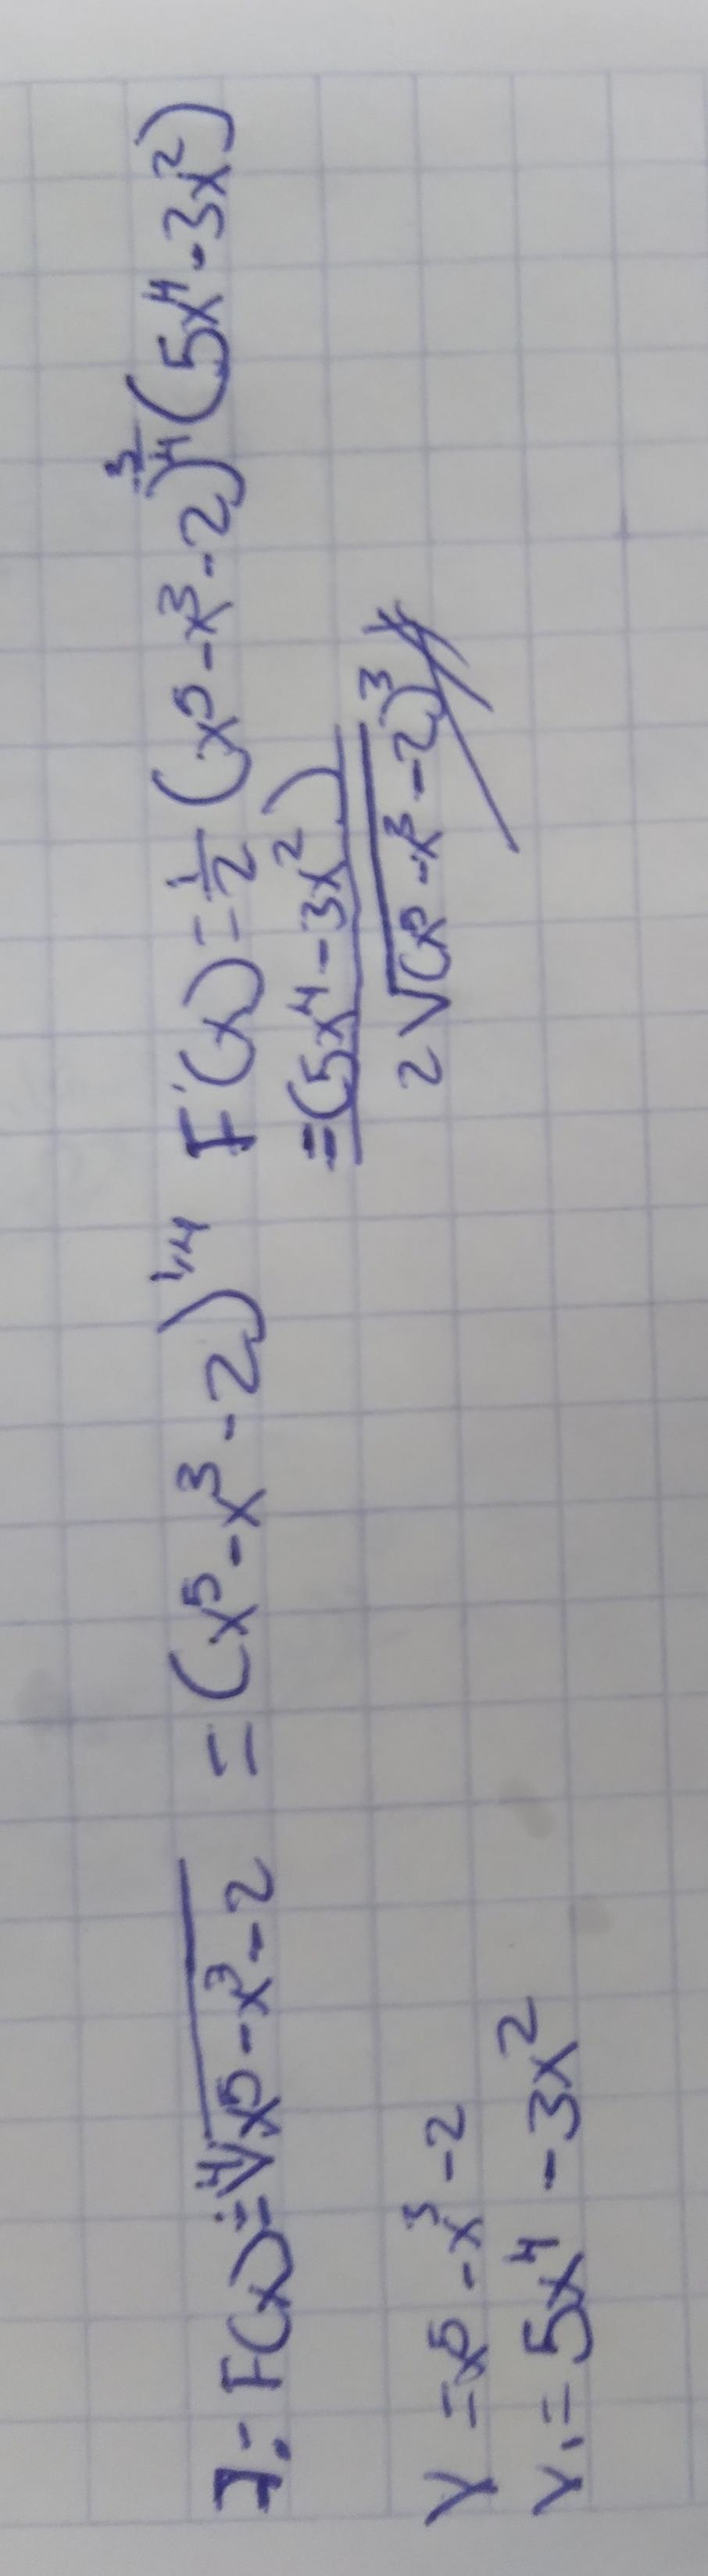 7.- F(x)=∜x⁵-x³-2 = (x⁵-x³-2)^1/4 F'(x)=1/2(x⁵-x³-2)^3/4(5x⁴-3x²)
=(5x⁴-3x²)/2√(x⁵-x³-2)³
y=x⁵-x³-2
y,=5x⁴-3x²